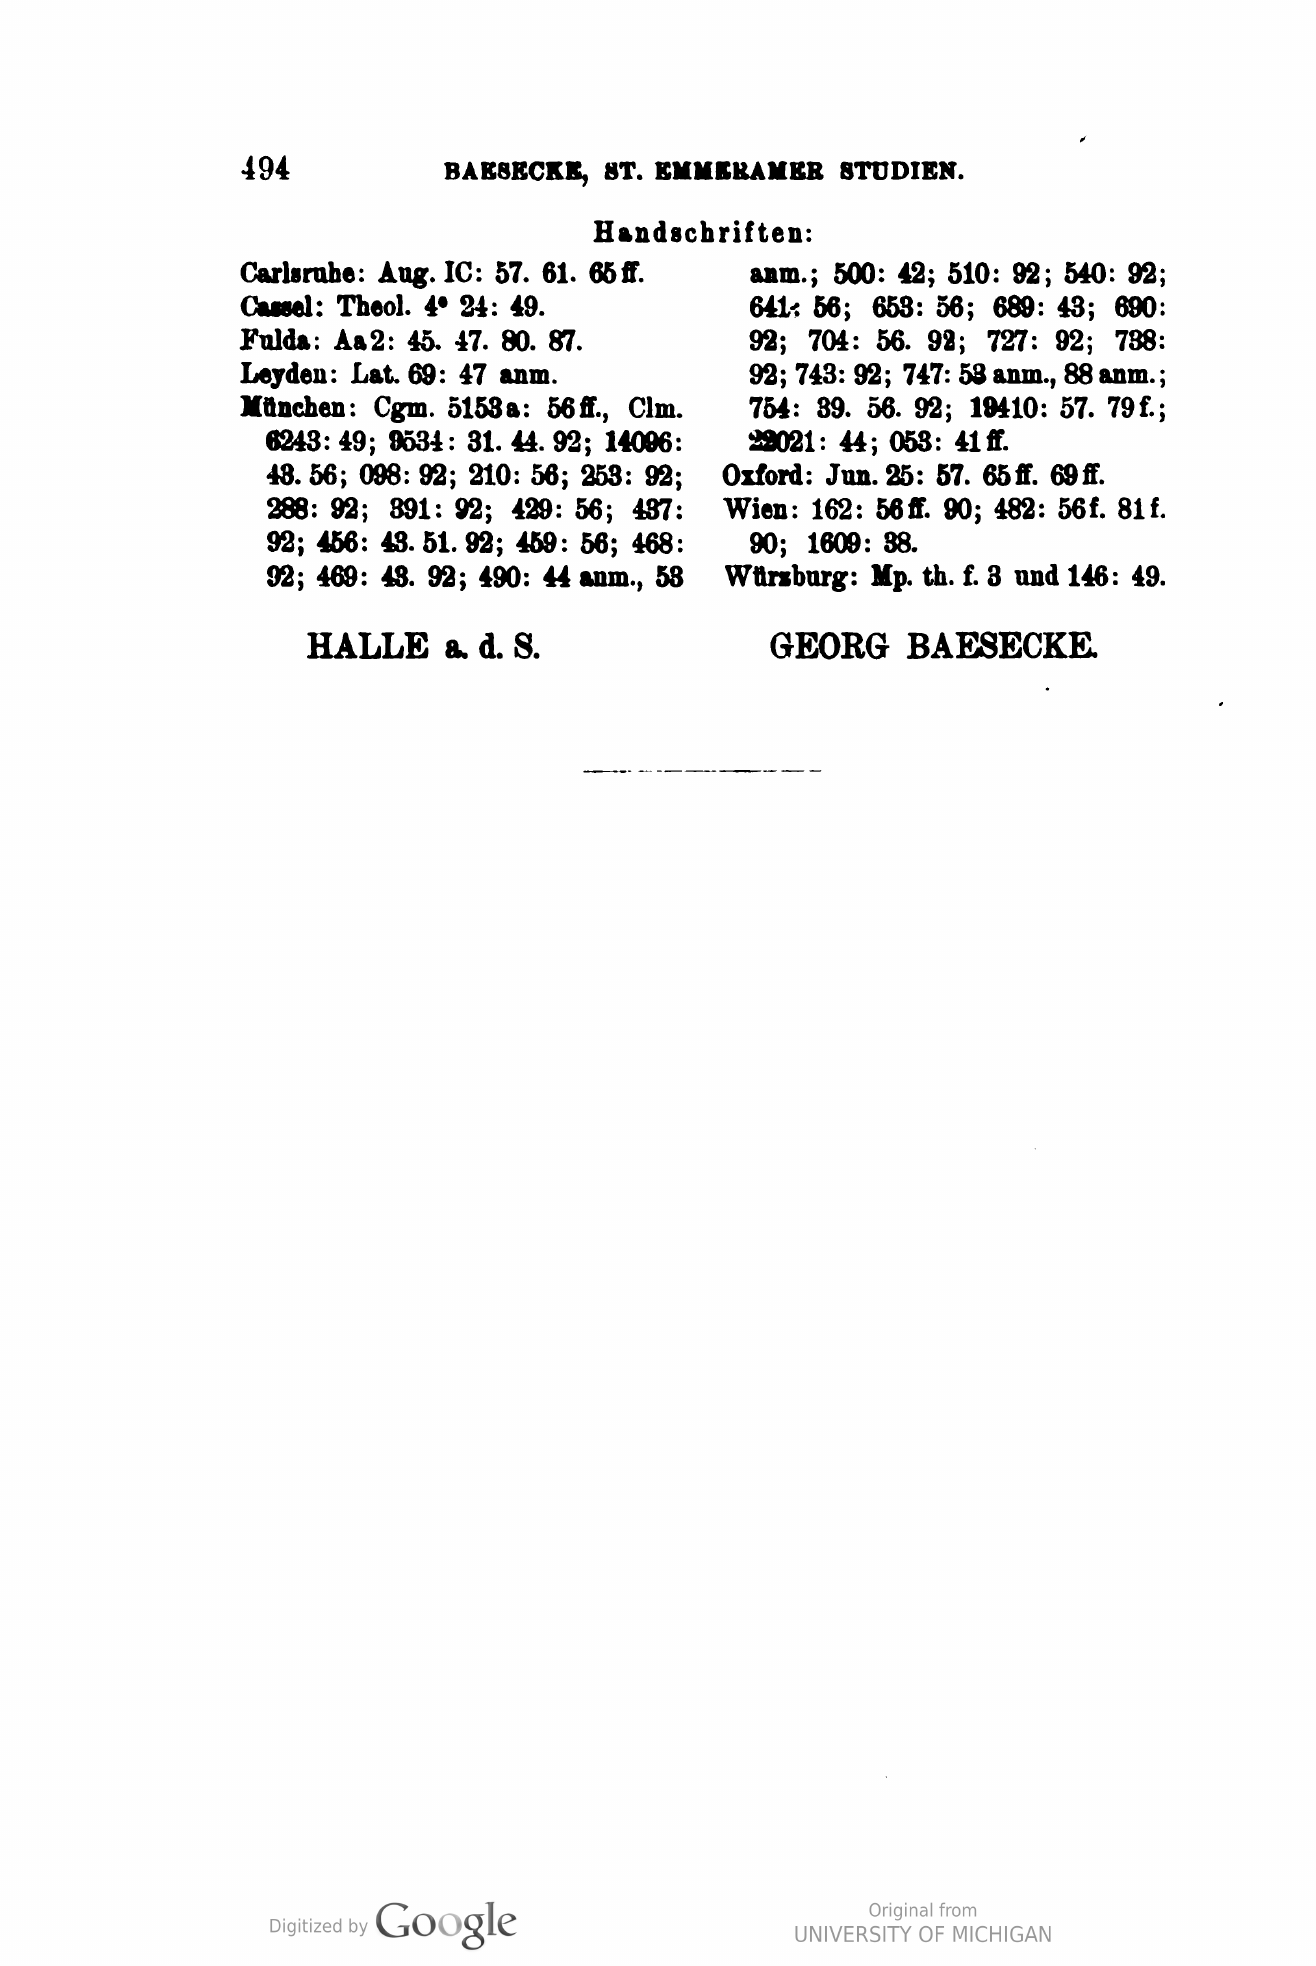 494 BAESECKE, ST. EMMERAMER STUDIEN.
Handschriften:
Carlsruhe: Aug. IC: 57. 61. 65 ff.
Cassel: Theol. 4° 24: 49.
Fulda: Aa2: 45. 47. 80. 87.
Leyden: Lat. 69: 47 anm.
München: Cgm. 5153a: 56 ff., Clm.
6243: 49; 9534: 31. 44. 92; 14096:
43. 56; 098: 92; 210: 56; 253: 92;
288: 92; 391: 92; 429: 56; 437:
92; 456: 43. 51. 92; 459: 56; 468:
92; 469: 43. 92; 490: 44 anm., 53
anm.; 500: 42; 510: 92; 540: 92;
641: 56; 653: 56; 689: 43; 690:
92; 704: 56. 92; 727: 92; 738:
92; 743: 92; 747: 53 anm., 88 anm.;
754: 39. 56. 92; 19410: 57. 79 f.;
22021: 44; 053: 41 ff.
Oxford: Jun. 25: 57. 65 ff. 69 ff.
Wien: 162: 56 ff. 90; 482: 56 f. 81 f.
90; 1609: 38.
Würzburg: Mp. th. f. 3 und 146: 49.
HALLE a. d. S. GEORG BAESECKE.
Digitized by Google
Original from
UNIVERSITY OF MICHIGAN